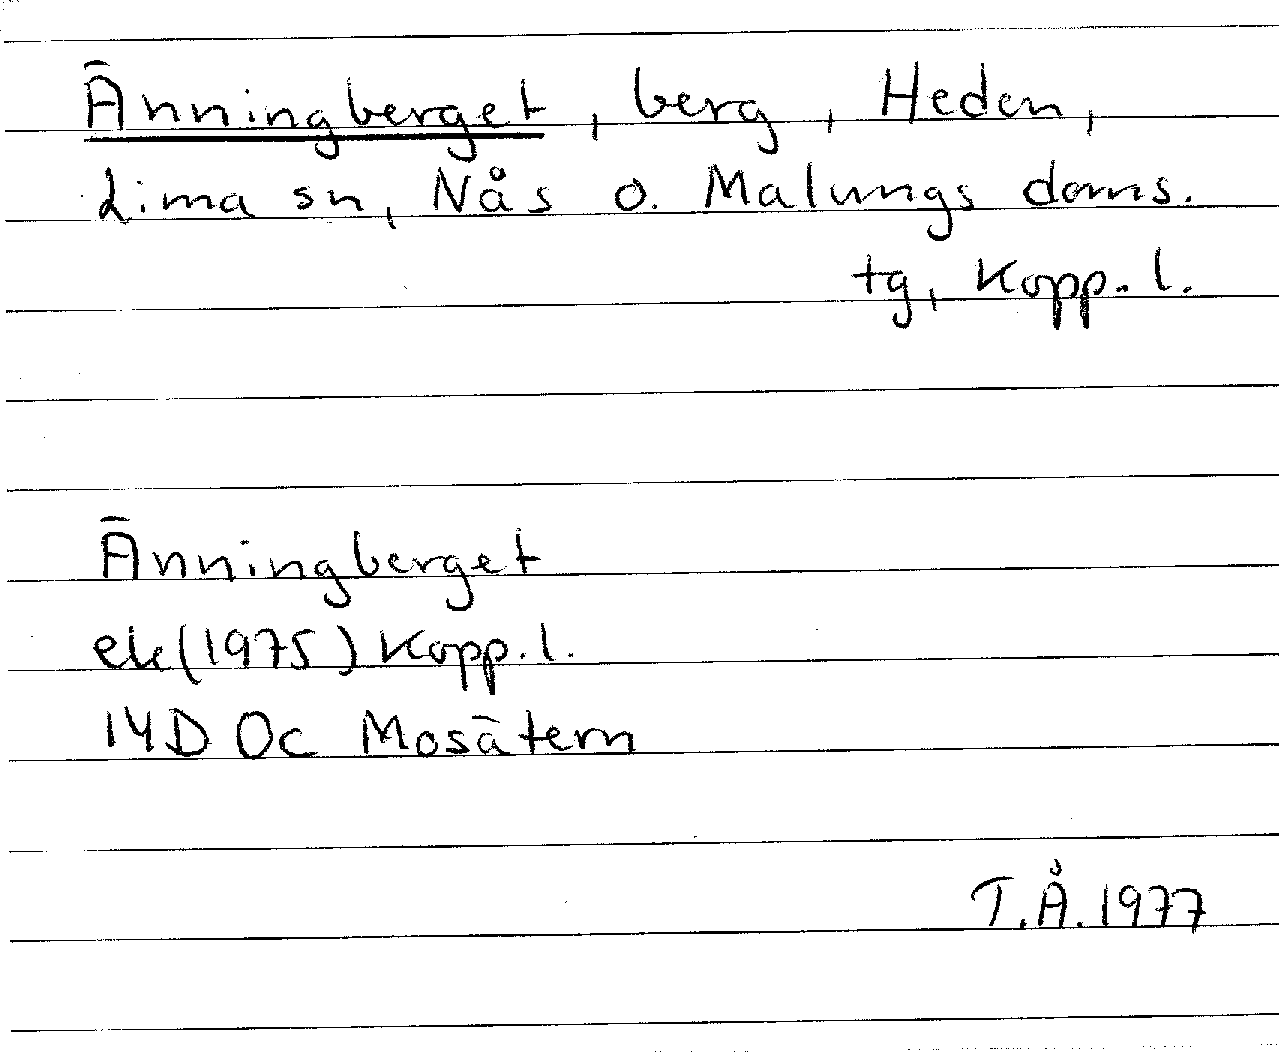 Änningberget, berg, Heden,
Lima sn, Nås o. Malungs doms.
tg, Kopp. l.
Änningberget
ek (1975) Kopp. l.
14D 0c Mosätern
T.Å. 1977